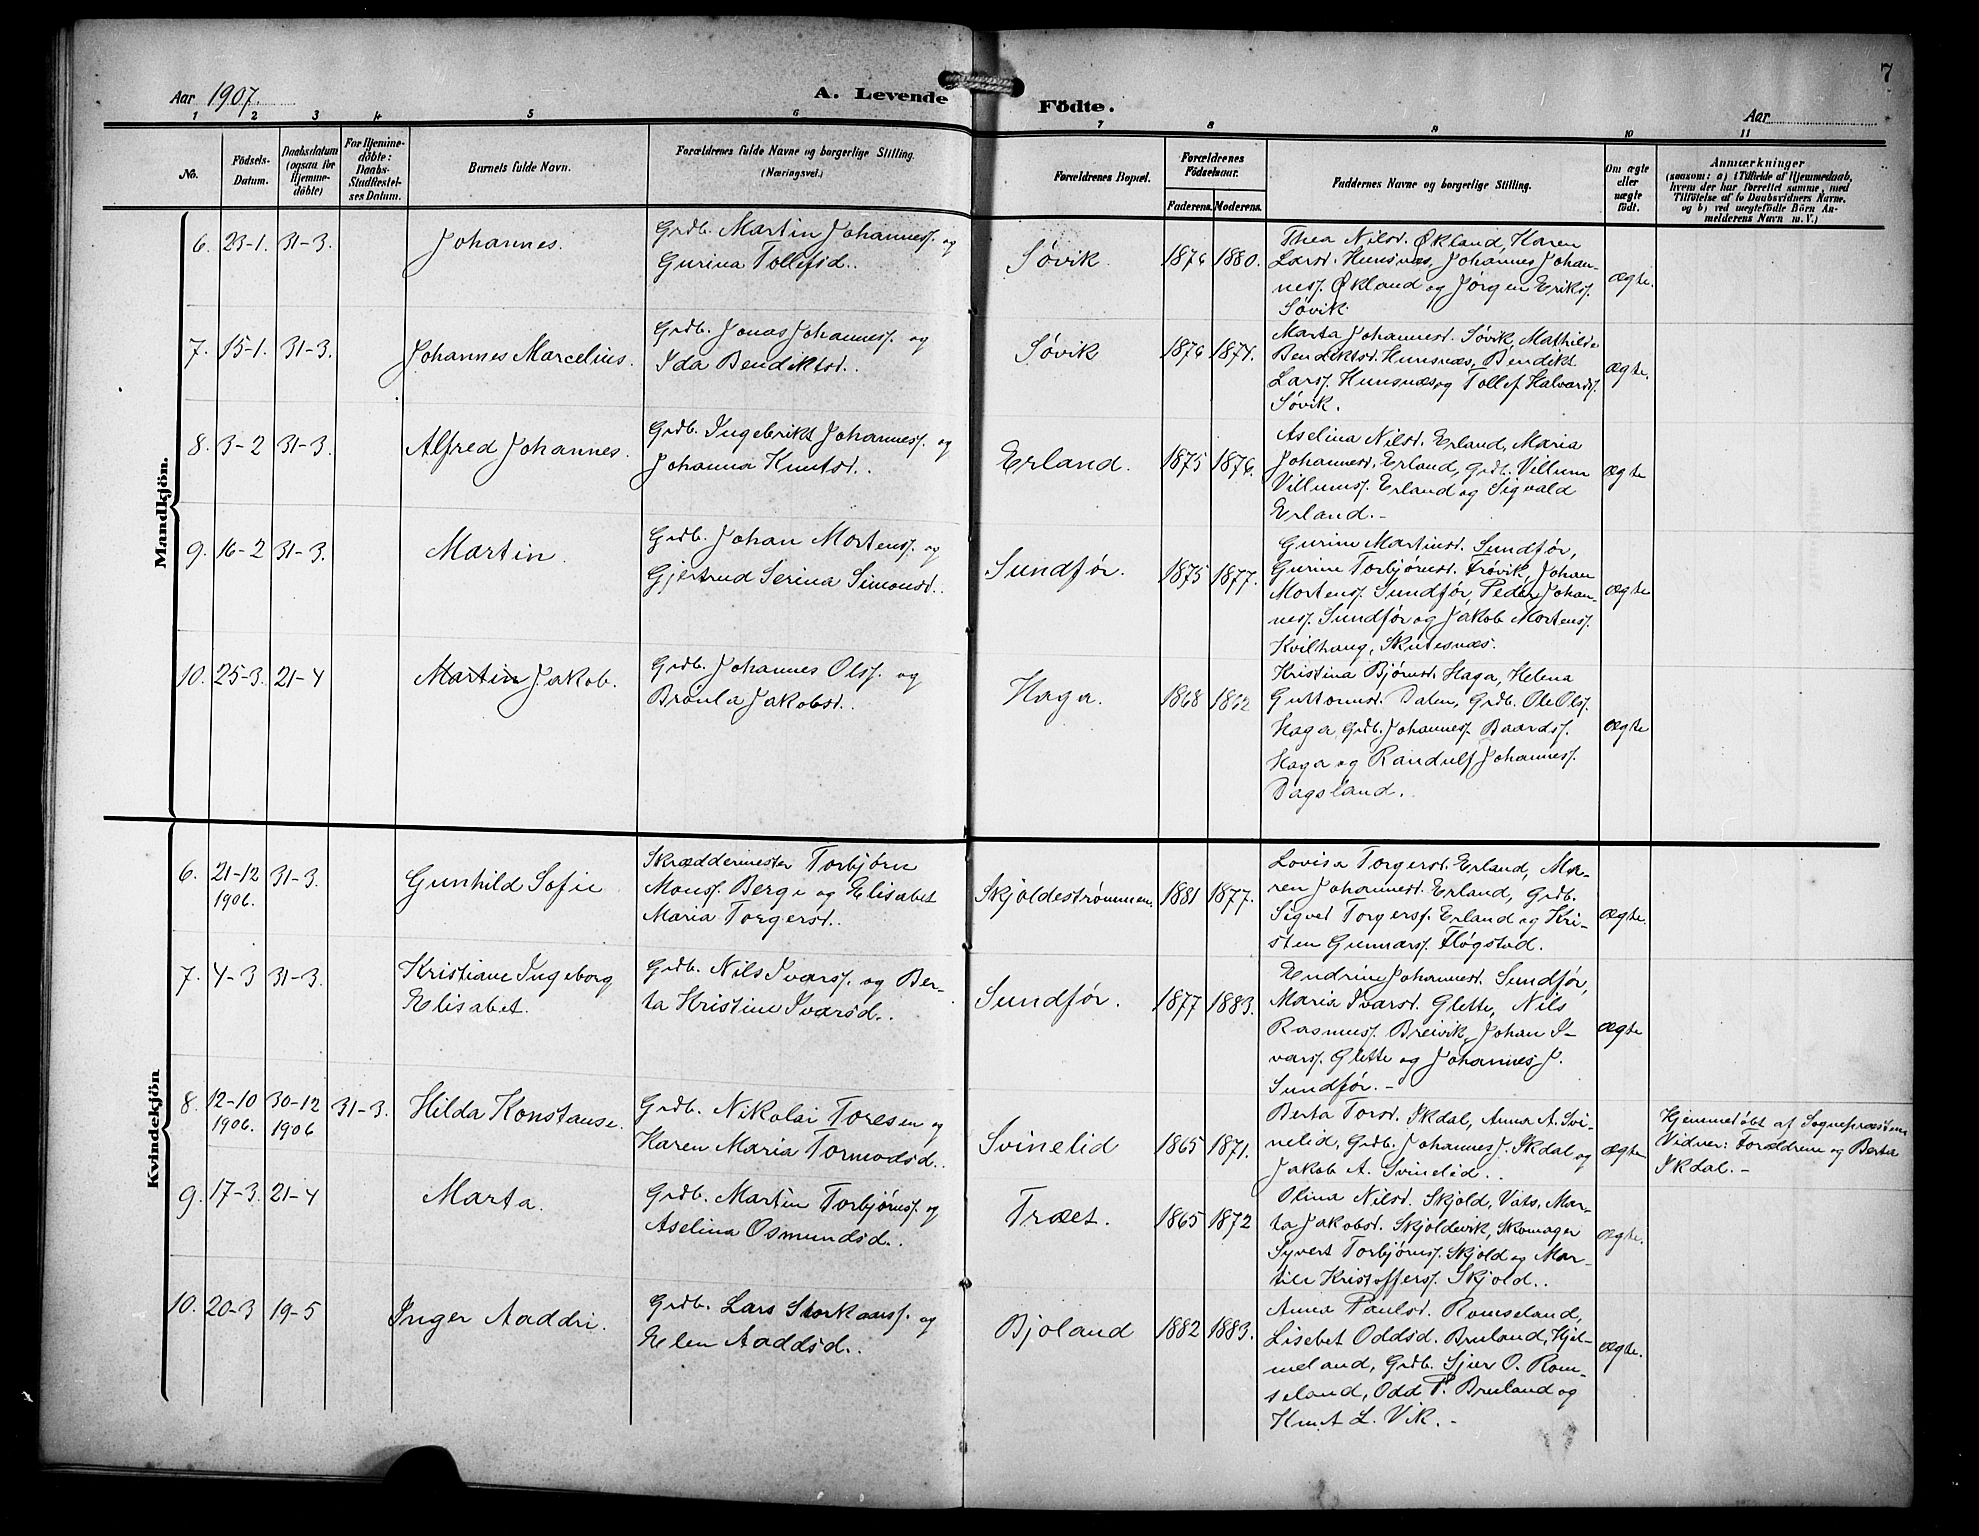 7
Aar 1907.
A. Levende Födte.
Aar
1 2 3 4 5 6 7 8 9 10 11
No.
Födsels-
Datum.
Daabsdatum
(ogsaa for
Hjemme-
döbte)
For Hjemme-
döbte:
Daabs-
Stadfæstel-
ses Datum.
Barnets fulde Navn.
Forældrenes fulde Navne og borgerlige Stilling.
(Næringsvei.)
Forældrenes Bopæl.
Forældrenes
Födselsaar.
Faderens. Moderens.
Faddernes Navne og borgerlige Stilling.
Om ægte
eller
uægte
födt.
Anmærkninger
(saasom: a) i Tilfælde af Hjemmedaab,
hvem der har forrettet samme, med
Tilföielse af to Daabsvidners Navne.
og b) ved uægtefödte Börn An-
melderens Navn m. V.)
Mandkjön.
6. 23-1. 31-3.
Johannes.
Grdb. Martin Johanness. og
Gurina Tollefsd.
Søvik. 1876 1880.
Thea Nilsd. Økland, Karen
Larsd. Hunsnæs, Johannes Johan-
ness. Økland og Jørgen Eriks.
Søvik.
ægte.
7. 15-1. 31-3.
Johannes Marcelius.
Grdb. Jonas Johanness. og
Ida Bendiktsd.
Søvik 1876 1874.
Marta Johannesd. Søvik, Mathilde
Bendiktsd. Hunsnæs, Bendikt
Larss. Hunsnæs og Tollef Halvards.
Søvik.
ægte.
8. 3-2 31-3.
Alfred Johannes.
Grdb. Ingebrikt Johanness. og
Johanna Knutsd.
Erland. 1875 1876.
Aselina Nilsd. Erland, Maria
Johannesd. Erland, Grdb. Villum
Villums. Erland og Sigvald
Erland.-
ægte
9. 16-2 31-3.
Martin.
Grdb. Johan Mortens. og
Gjertrud Serina Simonsd.
Sundfør. 1875 1877.
Gurine Martinsd. Sundfør,
Gurine Torbjørnsd. Frøvik, Johan
Mortens. Sundfør, Peder Johan-
ness. Sundfør og Jakob Mortens.
Kvilhaug, Skutesnæs.
ægte
10. 25-3. 21-4
Martin Jakob.
Grdb. Johannes Ols. og
Brönla Jakobsd.
Haga. 1868 1862
Kristina Bjørnsd. Haga, Helena
Guttormsd. Dalen, Grdb. Ole Ols.
Haga, Grdb. Johannes Baards.
Haga og Randulf Johanness.
Dagsland.
ægte
Kvindekjön
6. 21-12 31-3.
1906.
Gunhild Sofie
Skræddermester Torbjørn
Monss. Berge og Elisabet
Maria Torgersd.
Skjoldestrømmen. 1881 1877.
Lovisa Torgersd. Erland, Ma-
ren Johannesd. Erland, Grdb.
Sigved Torgers. Erland og Kri-
sten Gunnars. Fløgstad.
ægte.
7. 4-3 31-3.
Kristiane Ingeborg
Elisabet.
Grdb. Nils Ivars. og Ber-
ta Kristine Ivarsd.
Sundfør. 1877 1883.
Endrine Johannesd. Sundfør,
Maria Ivarsd. Glette, Nils
Rasmuss. Breivik, Johan I-
vars. Glette og Johannes J.
Sundfør.-
ægte
8. 12-10 30-12 31-3.
1906. 1906
Hilda Konstanse.
Grdb. Nikolai Toresen og
Karen Maria Tormodsd.
Svinelid 1865 1871.
Berta Torsd. Skdal, Anna A. Svi-
nelid, Grdb. Johannes J. Skdal og
Jakob A. Svinelid.
ægte
Hjemmedøbt af Sognepræsten,
Vidner: Forældrene og Berta
Skdal.-
9. 17-3. 21-4
Marta.
Grdb. Martin Torbjørns. og
Aselina Osmundsd.
Træet. 1865 1872
Olina Nilsd. Skjold, Vats, Mar-
ta Jakobsd. Skjoldevik, Skomager
Syvert Torbjørns. Skjold og Mar-
tile Kristoffers. Skjold.
ægte.
10. 20-3 19-5
Inger Aaddri.
Grdb. Lars Storkaars. og
Elen Aaddsd.
Bjoland 1882 1883.
Anna Paulsd. Romseland,
Lisebet Oddsd. Bruland, Hjel-
meland, Grdb. Sjur O. Rom-
seland, Odd P. Bruland og
Knut L. Vik.-
ægte.